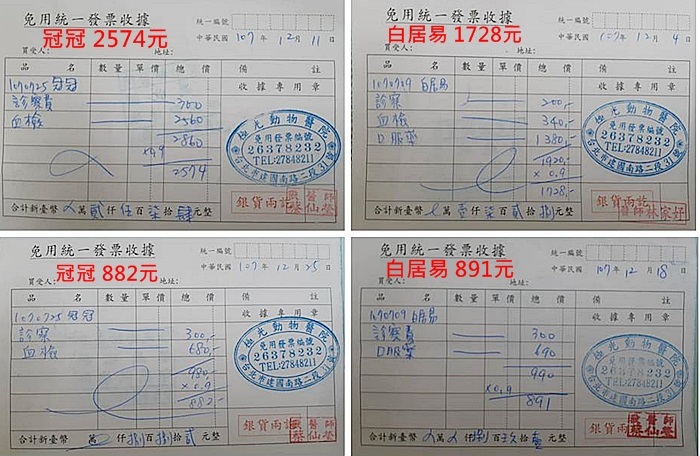 免用統一發票收據
冠冠 2574元
統一編號
中華民國 107 年 12 月 11 日
買受人: 地址:
品 名 數量 單價 總 價 備 註
1070725 冠冠 收據專用章
診察費 300
血檢 2560
2860
x0.9
2574
極光動物醫院
免用發票編號
26378232
TEL:27848211
台北市建國南路二段31號
銀貨兩訖
醫師
合計新臺幣 萬 貳 仟 伍 百 柒 拾 肆 元整
免用統一發票收據
白居易 1728元
統一編號
中華民國 107 年 12 月 4 日
買受人: 地址:
品 名 數量 單價 總 價 備 註
1070709 白居易 收據專用章
診察 200,-
血檢 340,-
口服藥 1380,-
1920,-
x 0.9
1728,-
極光動物醫院
免用發票編號
26378232
TEL:27848211
台北市建國南路二段31號
銀貨兩訖
醫師林家妤
合計新臺幣 萬 壹 仟 柒 百 貳 拾 捌 元整
免用統一發票收據
冠冠 882元
統一編號
中華民國 107 年 12 月 25 日
買受人: 地址:
品 名 數量 單價 總 價 備 註
1070725 冠冠 收據專用章
診察 300,-
血檢 680,-
980,-
x 0.9
882,-
極光動物醫院
免用發票編號
26378232
TEL:27848211
台北市建國南路二段31號
銀貨兩訖
醫師
合計新臺幣 萬 仟 捌 百 捌 拾 貳 元整
免用統一發票收據
白居易 891元
統一編號
中華民國 107 年 12 月 18 日
買受人: 地址:
品 名 數量 單價 總 價 備 註
1070709 白居易 收據專用章
診察費 300
口服藥 690
990
x0.9
891
極光動物醫院
免用發票編號
26378232
TEL:27848211
台北市建國南路二段31號
銀貨兩訖
醫師
合計新臺幣 萬 仟 捌 百 玖 拾 壹 元整